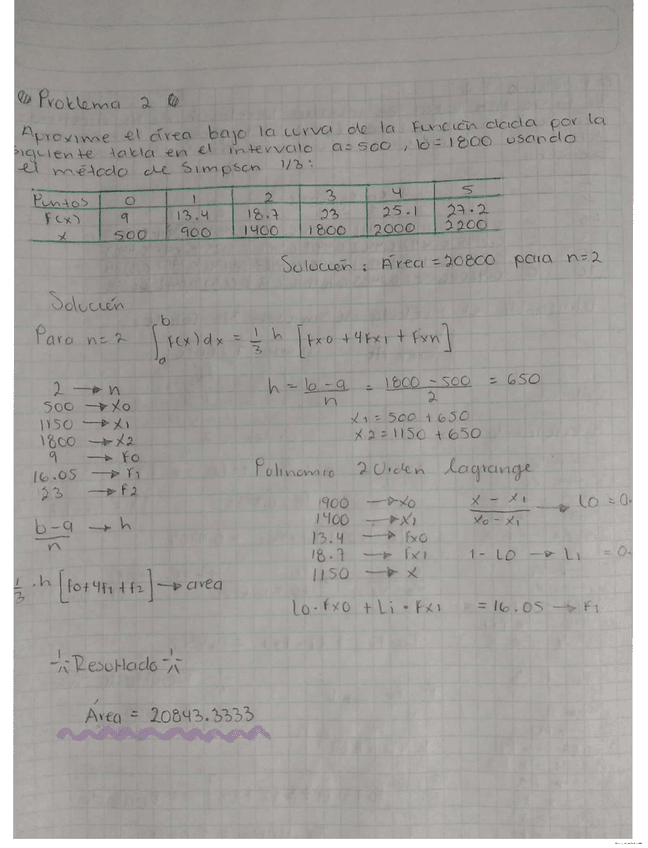 Problema 2
Aproxime el área bajo la curva de la función dada por la
siguiente tabla en el intervalo a=500, b=1800 usando
el método de Simpson 1/3:
Puntos 0 1 2 3 4 5
F(x) 9 13.4 18.7 23 25.1 27.2
x 500 900 1400 1800 2000 2200
Solución: Área = 20800 para n=2
Solución
Para n=2 ∫ₐᵇ f(x)dx = 1/3 h [Fx0 + 4Fx1 + Fxn]
2 → n
500 → x0
1150 → x1
1800 → x2
9 → F0
16.05 → F1
23 → F2
b-a/n → h
1/3 · h [f0+4f1+f2] → area
h = b-a/n = 1800-500/2 = 650
x1 = 500 + 650
x2 = 1150 + 650
Polinomio 2 Orden Lagrange
1900 → x0
1400 → x1
13.4 → Fx0
18.7 → Fx1
1150 → x
x - x1/x0 - x1 → L0 = 0.
1 - L0 → L1 = 0.
L0 · Fx0 + Li · Fx1 = 16.05 → F1
Resultado
Área = 20843.3333